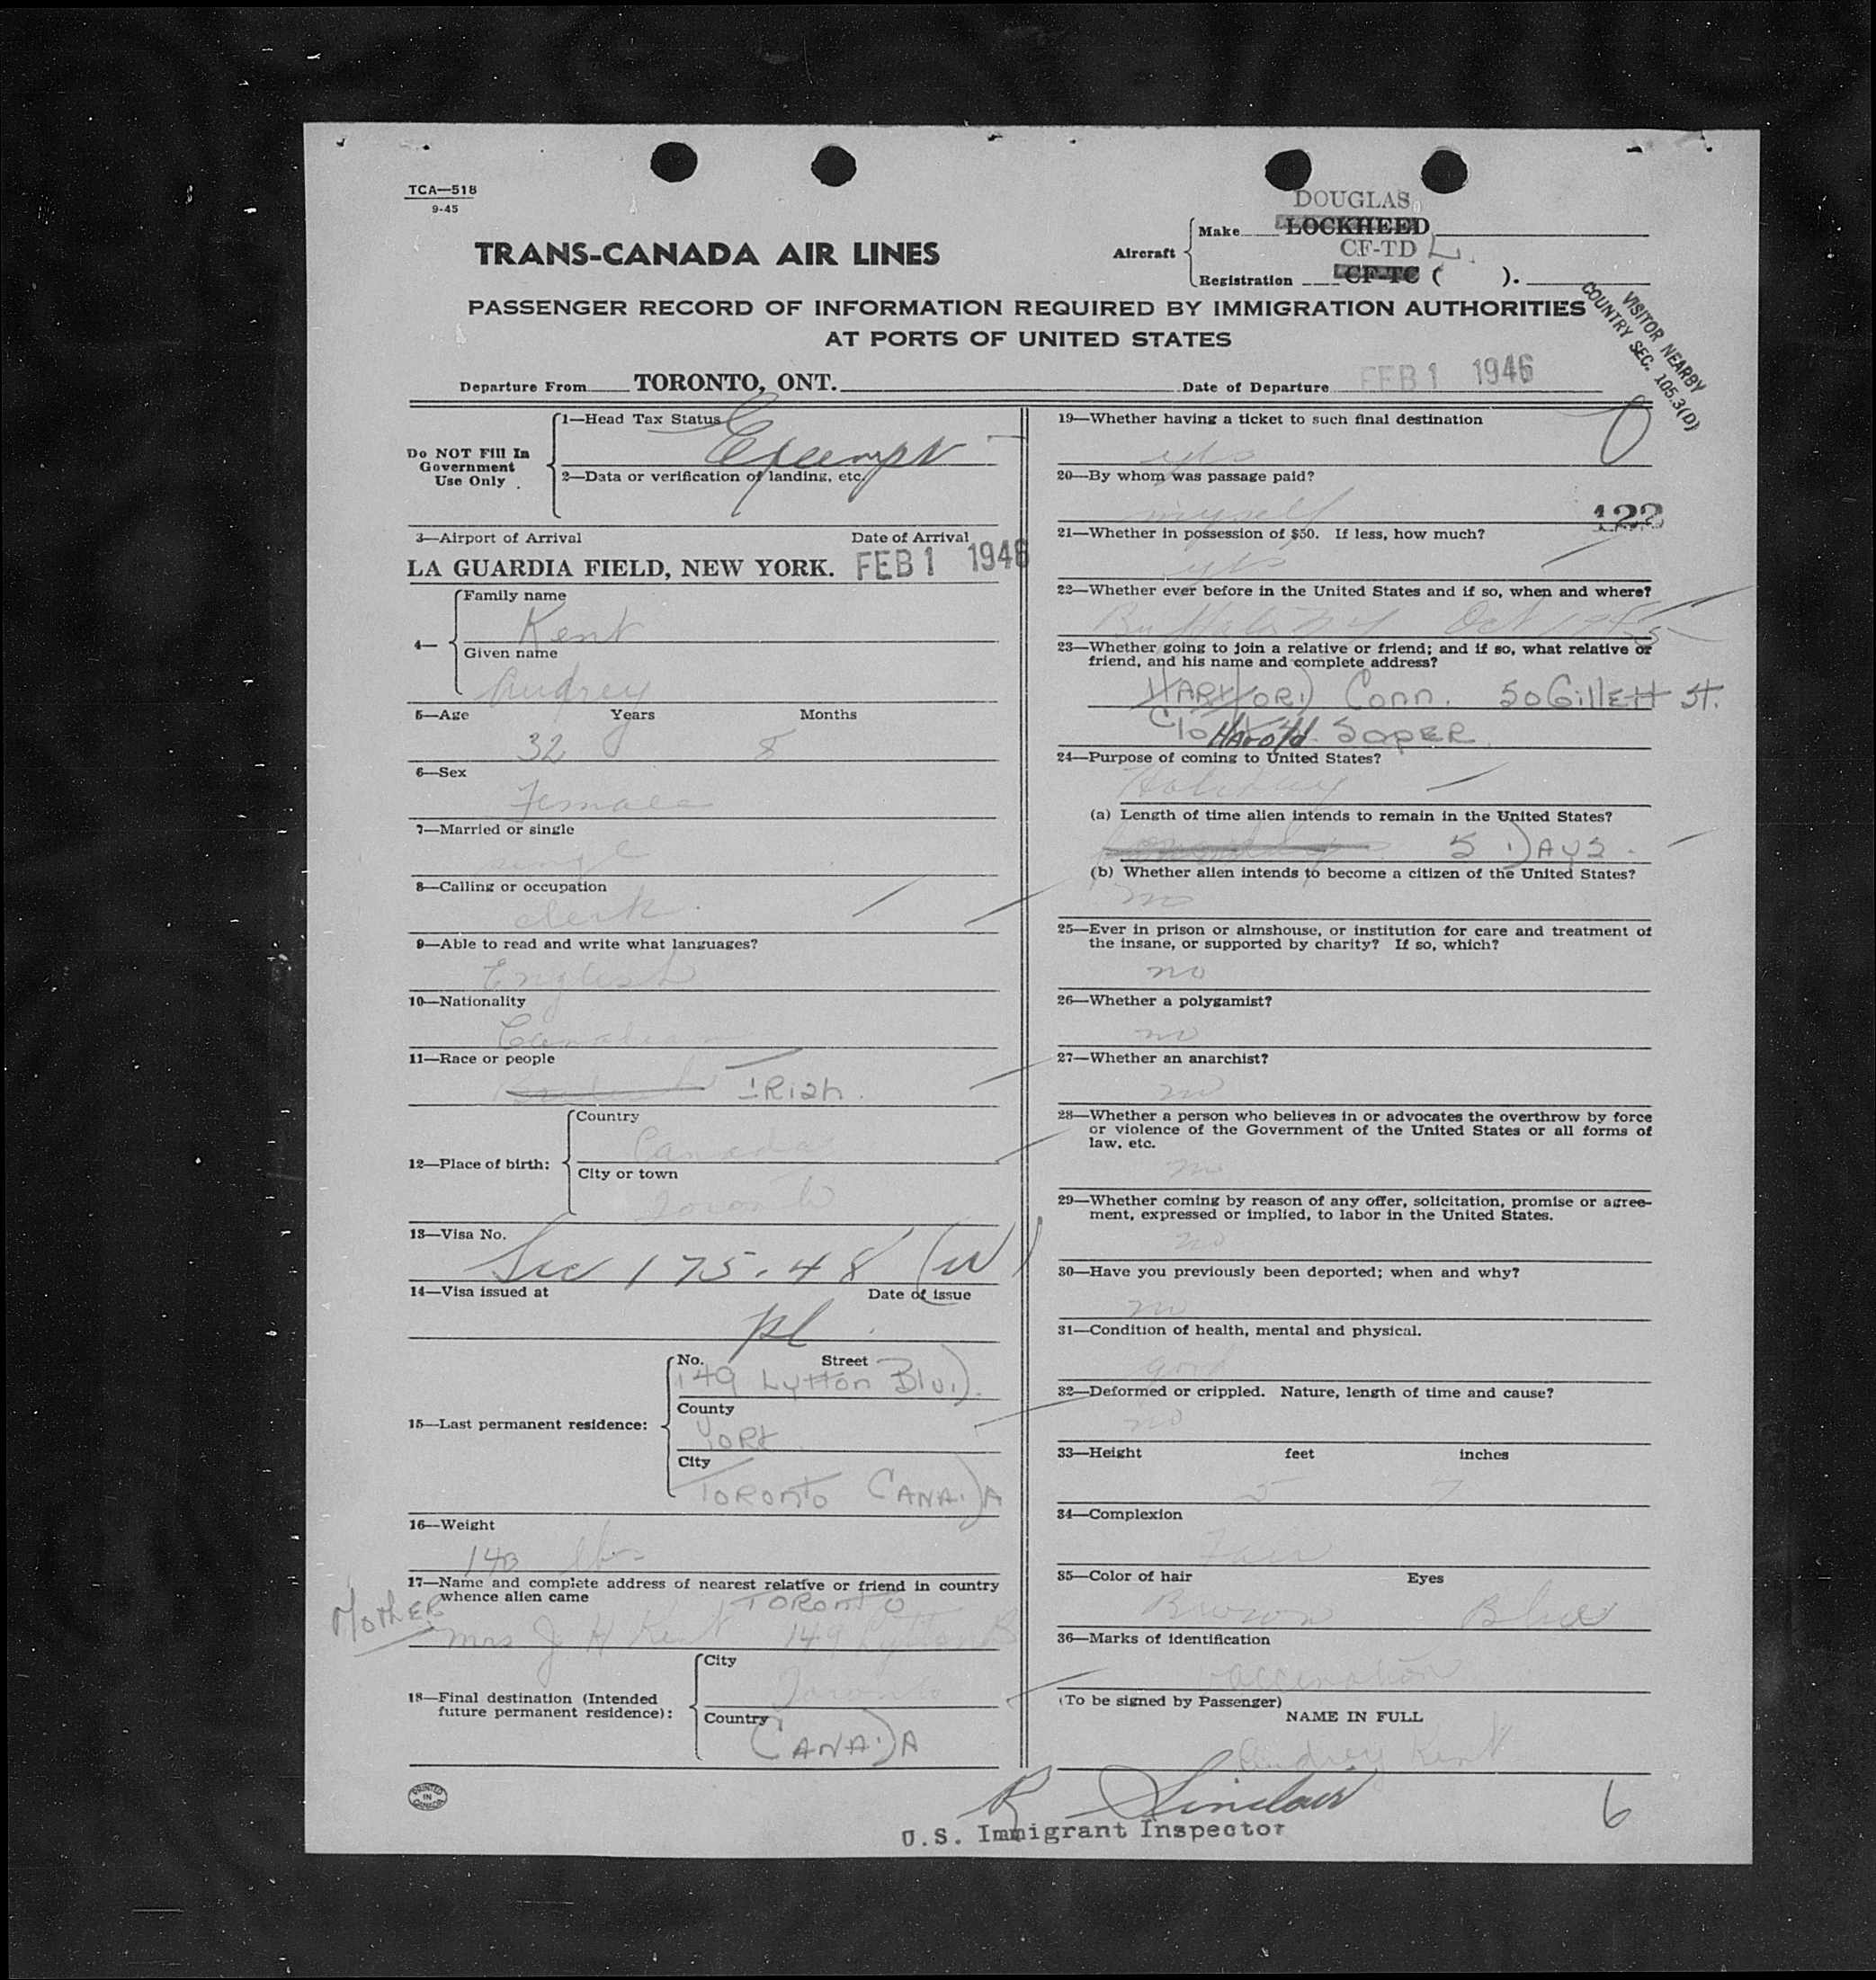 TCA—518
9-45
DOUGLAS
Aircraft
Make LOCKHEED
CF-TD L.
Registration CF-TC ( ).
TRANS-CANADA AIR LINES
PASSENGER RECORD OF INFORMATION REQUIRED BY IMMIGRATION AUTHORITIES
AT PORTS OF UNITED STATES
VISITOR NEARBY
COUNTRY SEC. 105.3(D)
Departure From TORONTO, ONT. Date of Departure FEB 1 1946
Do NOT Fill In
Government
Use Only
1—Head Tax Status
Exempt
2—Data or verification of landing, etc.
3—Airport of Arrival Date of Arrival
LA GUARDIA FIELD, NEW YORK. FEB 1 1946
4—
Family name
Kent
Given name
Audrey
5—Age Years Months
32 8
6—Sex
Female
7—Married or single
single
8—Calling or occupation
clerk.
9—Able to read and write what languages?
English
10—Nationality
Canadian
11—Race or people
IRish.
12—Place of birth:
Country
Canada
City or town
Toronto
13—Visa No.
Sec 175.48 (W)
14—Visa issued at Date of issue
pl.
15—Last permanent residence:
No. Street
149 Lytton Blvd.
County
York
City
TORONTO CANADA
16—Weight
140 lbs
17—Name and complete address of nearest relative or friend in country
whence alien came
TORONTO
MotHER
Mrs J H Kent 149 Lytton B
18—Final destination (Intended
future permanent residence):
City
Toronto
Country
CANADA
19—Whether having a ticket to such final destination
yes
20—By whom was passage paid?
myself
122
21—Whether in possession of $50. If less, how much?
yes
22—Whether ever before in the United States and if so, when and where?
Buffalo NY Oct 1945
23—Whether going to join a relative or friend; and if so, what relative or
friend, and his name and complete address?
HARtfORD Conn. 50 GillEtt St.
C/o Harold SOPER
24—Purpose of coming to United States?
Holiday
(a) Length of time alien intends to remain in the United States?
5 DAYS.
(b) Whether alien intends to become a citizen of the United States?
no
25—Ever in prison or almshouse, or institution for care and treatment of
the insane, or supported by charity? If so, which?
no
26—Whether a polygamist?
no
27—Whether an anarchist?
no
28—Whether a person who believes in or advocates the overthrow by force
or violence of the Government of the United States or all forms of
law, etc.
no
29—Whether coming by reason of any offer, solicitation, promise or agree-
ment, expressed or implied, to labor in the United States.
no
30—Have you previously been deported; when and why?
no
31—Condition of health, mental and physical.
good
32—Deformed or crippled. Nature, length of time and cause?
no
33—Height feet inches
5 7
34—Complexion
Fair
35—Color of hair Eyes
Brown Blue
36—Marks of identification
vaccination
(To be signed by Passenger)
NAME IN FULL
Audrey Kent
R Sinclair
U.S. Immigrant Inspector
6
PRINTED
IN
CANADA